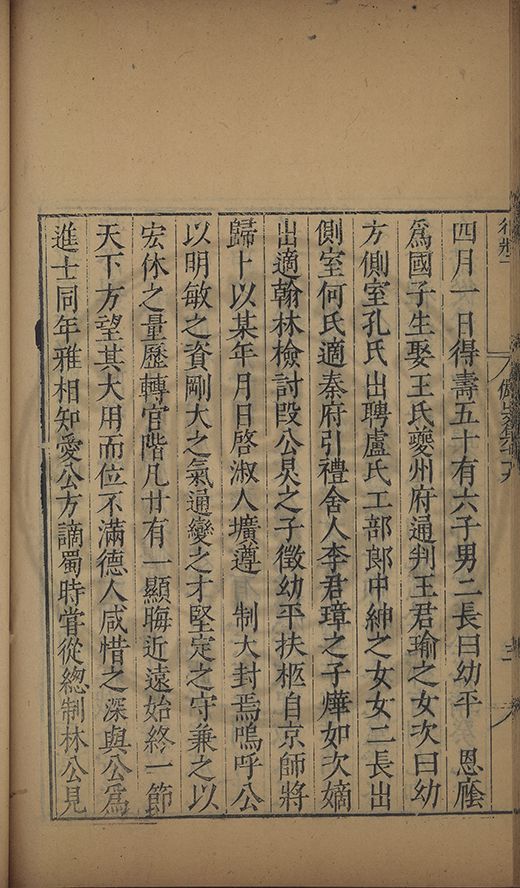 四月一日得壽五十有六子男二長曰幼平　恩廕
爲國子生娶王氏夔州府通判王君瑜之女次曰幼
方側室孔氏出聘盧氏工部郎中紳之女女二長出
側室何氏適秦府引禮舍人李君璋之子燁如次嫡
出適翰林檢討段公炅之子徵幼平扶柩自京師將
歸卜以某年月日啓淑人壙遵　制大封焉嗚呼公
以明敏之資剛大之氣通變之才堅定之守兼之以
宏休之量歷轉官階凡廿有一顯晦近遠始終一節
天下方望其大用而位不滿德人咸惜之深與公爲
進士同年雅相知愛公方謫蜀時嘗從總制林公見